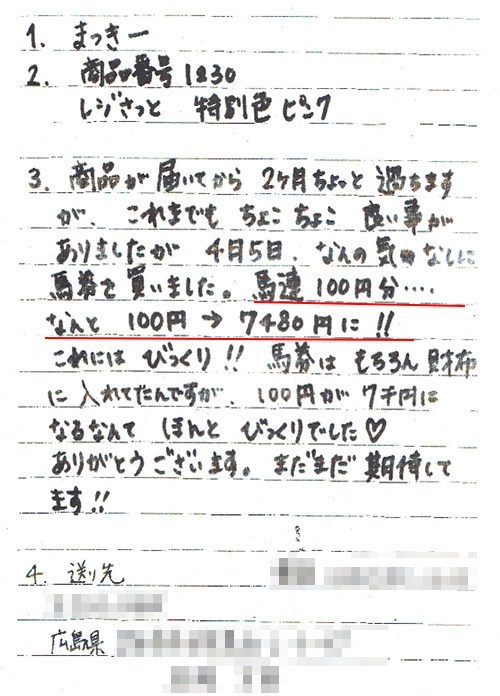 1. まっきー
2. 商品番号1230
レジさっと 特別色ピンク
3. 商品が届いてから 2ヶ月ちょっと 過ちます
が、これまでも ちょこちょこ 良い事が
ありましたが 4月5日、なんの気なしに
馬券を買いました。馬連100円分‥‥
なんと 100円 → 7480円に!!
これには びっくり!! 馬券は もちろん 財布
に 入れてたんですが、100円が 7千円に
なるなんて ほんと びっくりでした♡
ありがとうございます。まだまだ 期待して
ます!!
4. 送り先
広島県